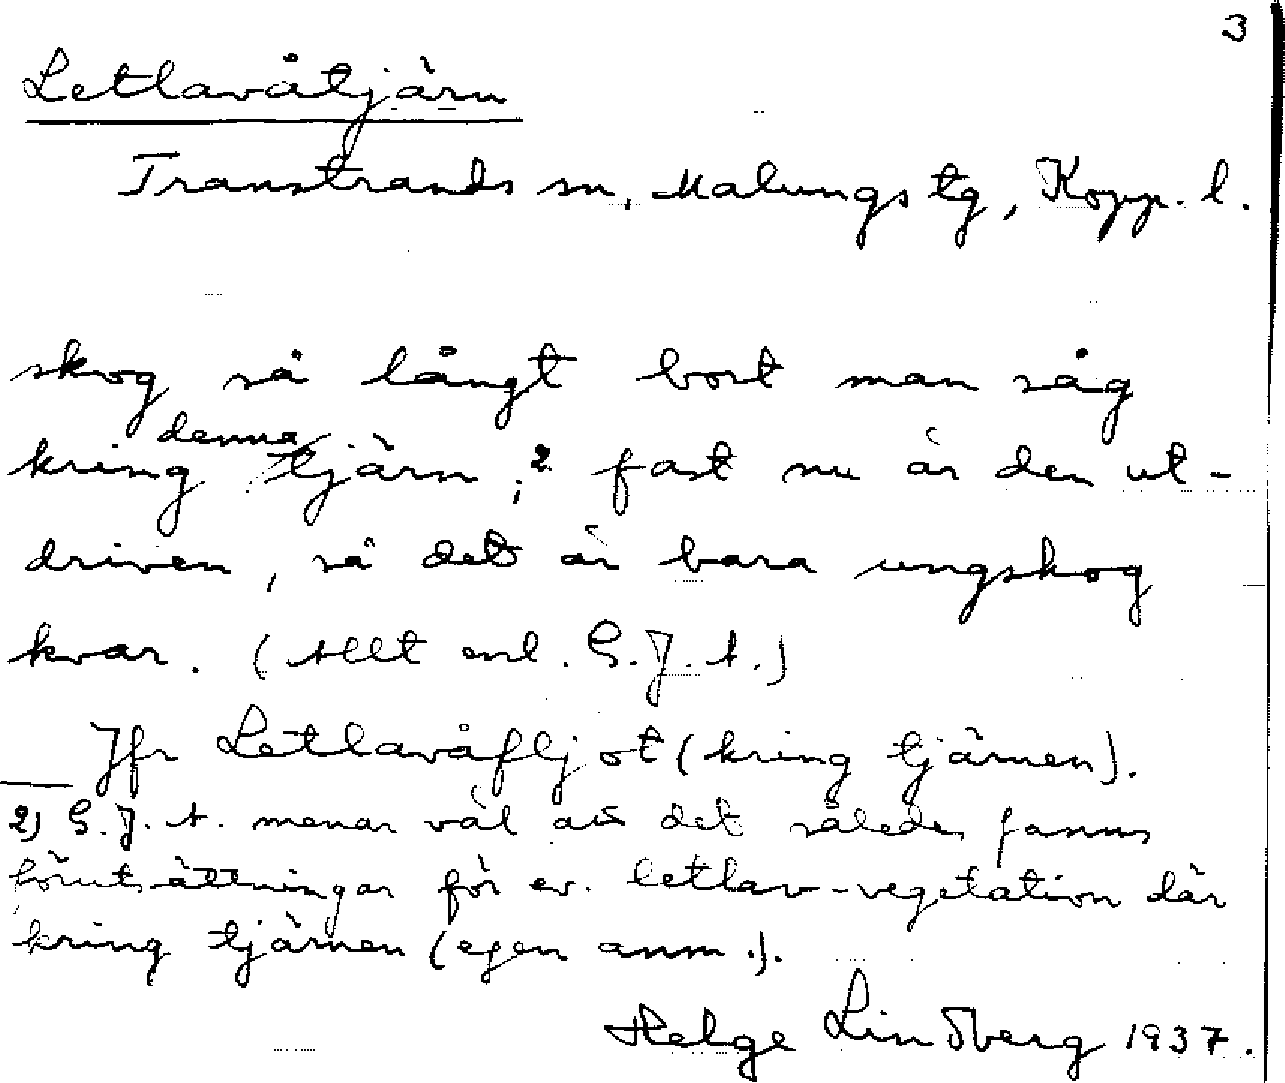 3
Letlavåtjärn
Transtrands sn, Malungs tg, Kopp. l.
skog så långt bort man såg
kring denna tjärn,² fast nu är den ut-
driven, så det är bara ungskog
kvar. (Allt enl. G. J. A.)
Jfr Letlavåfljot (kring tjärnen).
2) G. J. A. menar väl att det således fanns
förutsättningar för ev. letlav-vegetation där
kring tjärnen (egen anm.).
Helge Lindberg 1937.